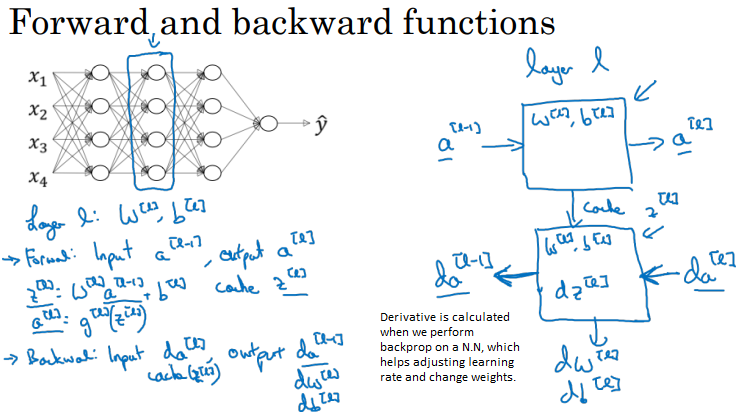 Forward and backward functions
x₁
x₂
x₃
x₄
ŷ
Layer l: W^[l], b^[l]
→ Forward: Input a^[l-1], output a^[l]
z^[l]: W^[l] a^[l-1] + b^[l] cache z^[l]
a^[l]: g^[l](z^[l])
→ Backward: Input da^[l], output da^[l-1]
cache(z^[l])
dW^[l]
db^[l]
layer l
a^[l-1]
W^[l], b^[l]
a^[l]
cache z^[l]
W^[l], b^[l]
da^[l-1]
dz^[l]
da^[l]
dW^[l]
db^[l]
Derivative is calculated
when we perform
backprop on a N.N, which
helps adjusting learning
rate and change weights.